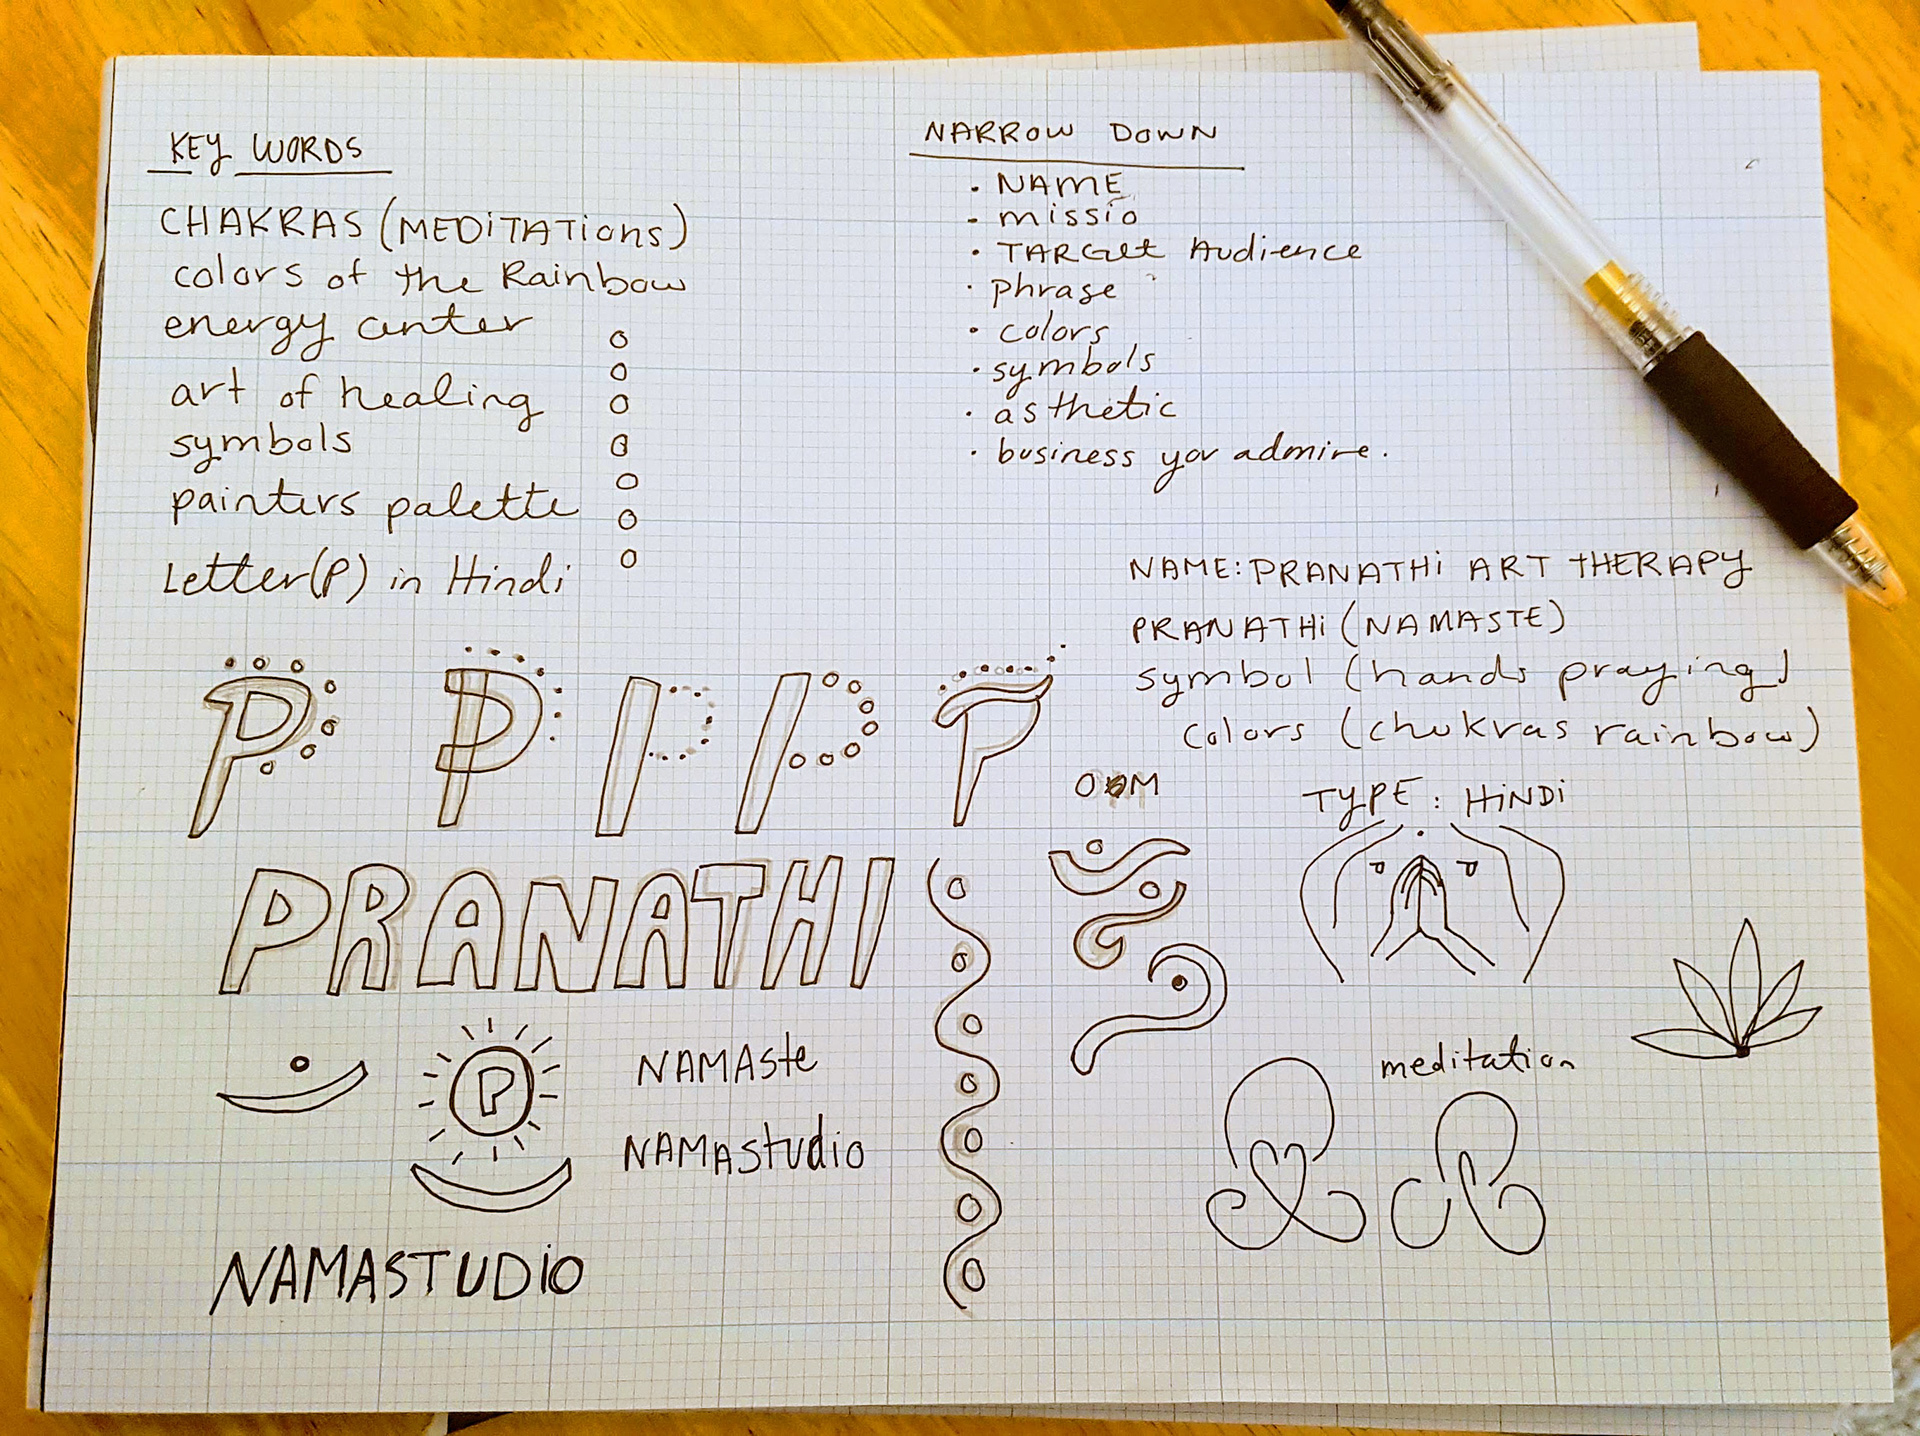 KEY WORDS
CHAKRAS (MEDiTATions)
colors of the Rainbow
energy center
art of healing
symbols
painters palette
Letter(P) in Hindi
NARROW DOWN
· NAME
- missio
· TARGet Audience
· phrase
· colors
· symbols
· asthetic
· business you admire.
NAME: PRANATHi ART tHERAPY
PRANATHi (NAMASTE)
symbol (hands praying)
Colors (chukras rainbow)
TYPE : HiNDi
P P P P P
OOM
PRANATHI
P
NAMAste
NAMAstudio
meditation
NAMASTUDiO